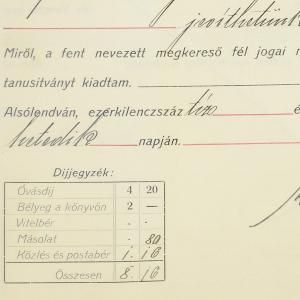 javíthatunk
Miről, a fent nevezett megkereső fél jogai m
tanusítványt kiadtam.
Alsólendván, ezerkilenczszáz tíz é
hetedik napján.
Díjjegyzék:
Óvásdíj 4 20
Bélyeg a könyvön 2 —
Vitelbér - -
Másolat - 80
Közlés és postabér 1. 16
Összesen 8. 16